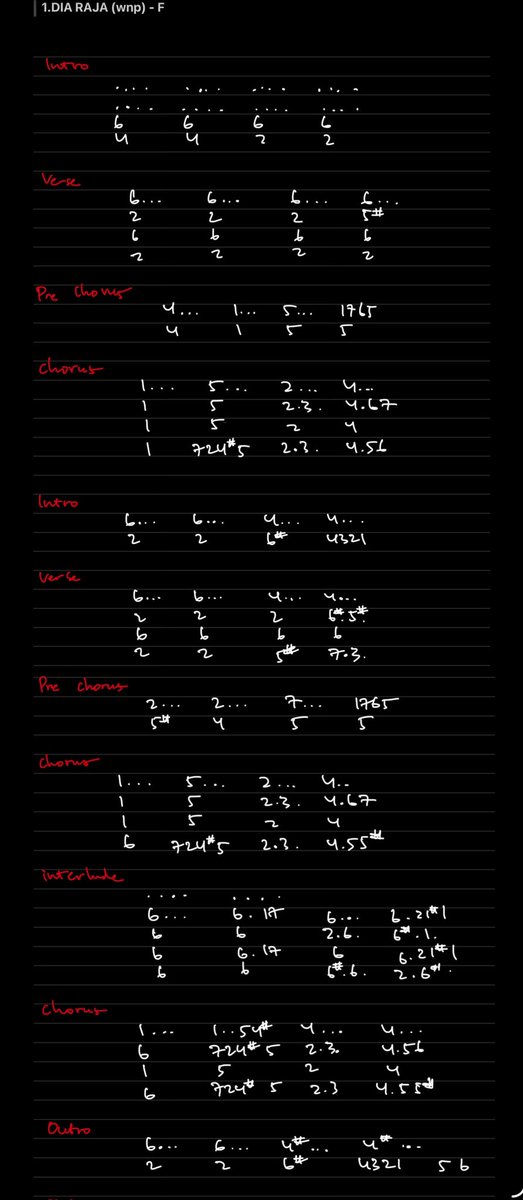 1.DIA RAJA (wnp) - F
Intro
.... .... .... ....
.... .... .... ....
6 6 6 6
4 4 2 2
Verse
6... 6... 6... 6...
2 2 2 5#
6 6 6 6
2 2 2 2
Pre Chorus
4... 1... 5... 1765
4 1 5 5
Chorus
1... 5... 2... 4...
1 5 2.3. 4.67
1 5 2 4
1 724#5 2.3. 4.56
Intro
6... 6... 4... 4...
2 2 6# 4321
Verse
6... 6... 4... 4...
2 2 2 6#.5#.
6 6 6 6
2 2 5# 7.3.
Pre chorus
2... 2... 7... 1765
5# 4 5 5
Chorus
1... 5... 2... 4..
1 5 2.3. 4.67
1 5 2 4
6 724#5 2.3. 4.55#
interlude
.... ....
6... 6.17 6... 6.21#1
6 6 2.6. 6#.1.
6 6.17 6 6.21#1
6 6 6#.6. 2.6#.
Chorus
1... 1..54# 4... 4...
6 724#5 2.3. 4.56
1 5 2 4
6 724#5 2.3 4.55#
Outro
6... 6... 4#... 4#...
2 2 6# 4321 56